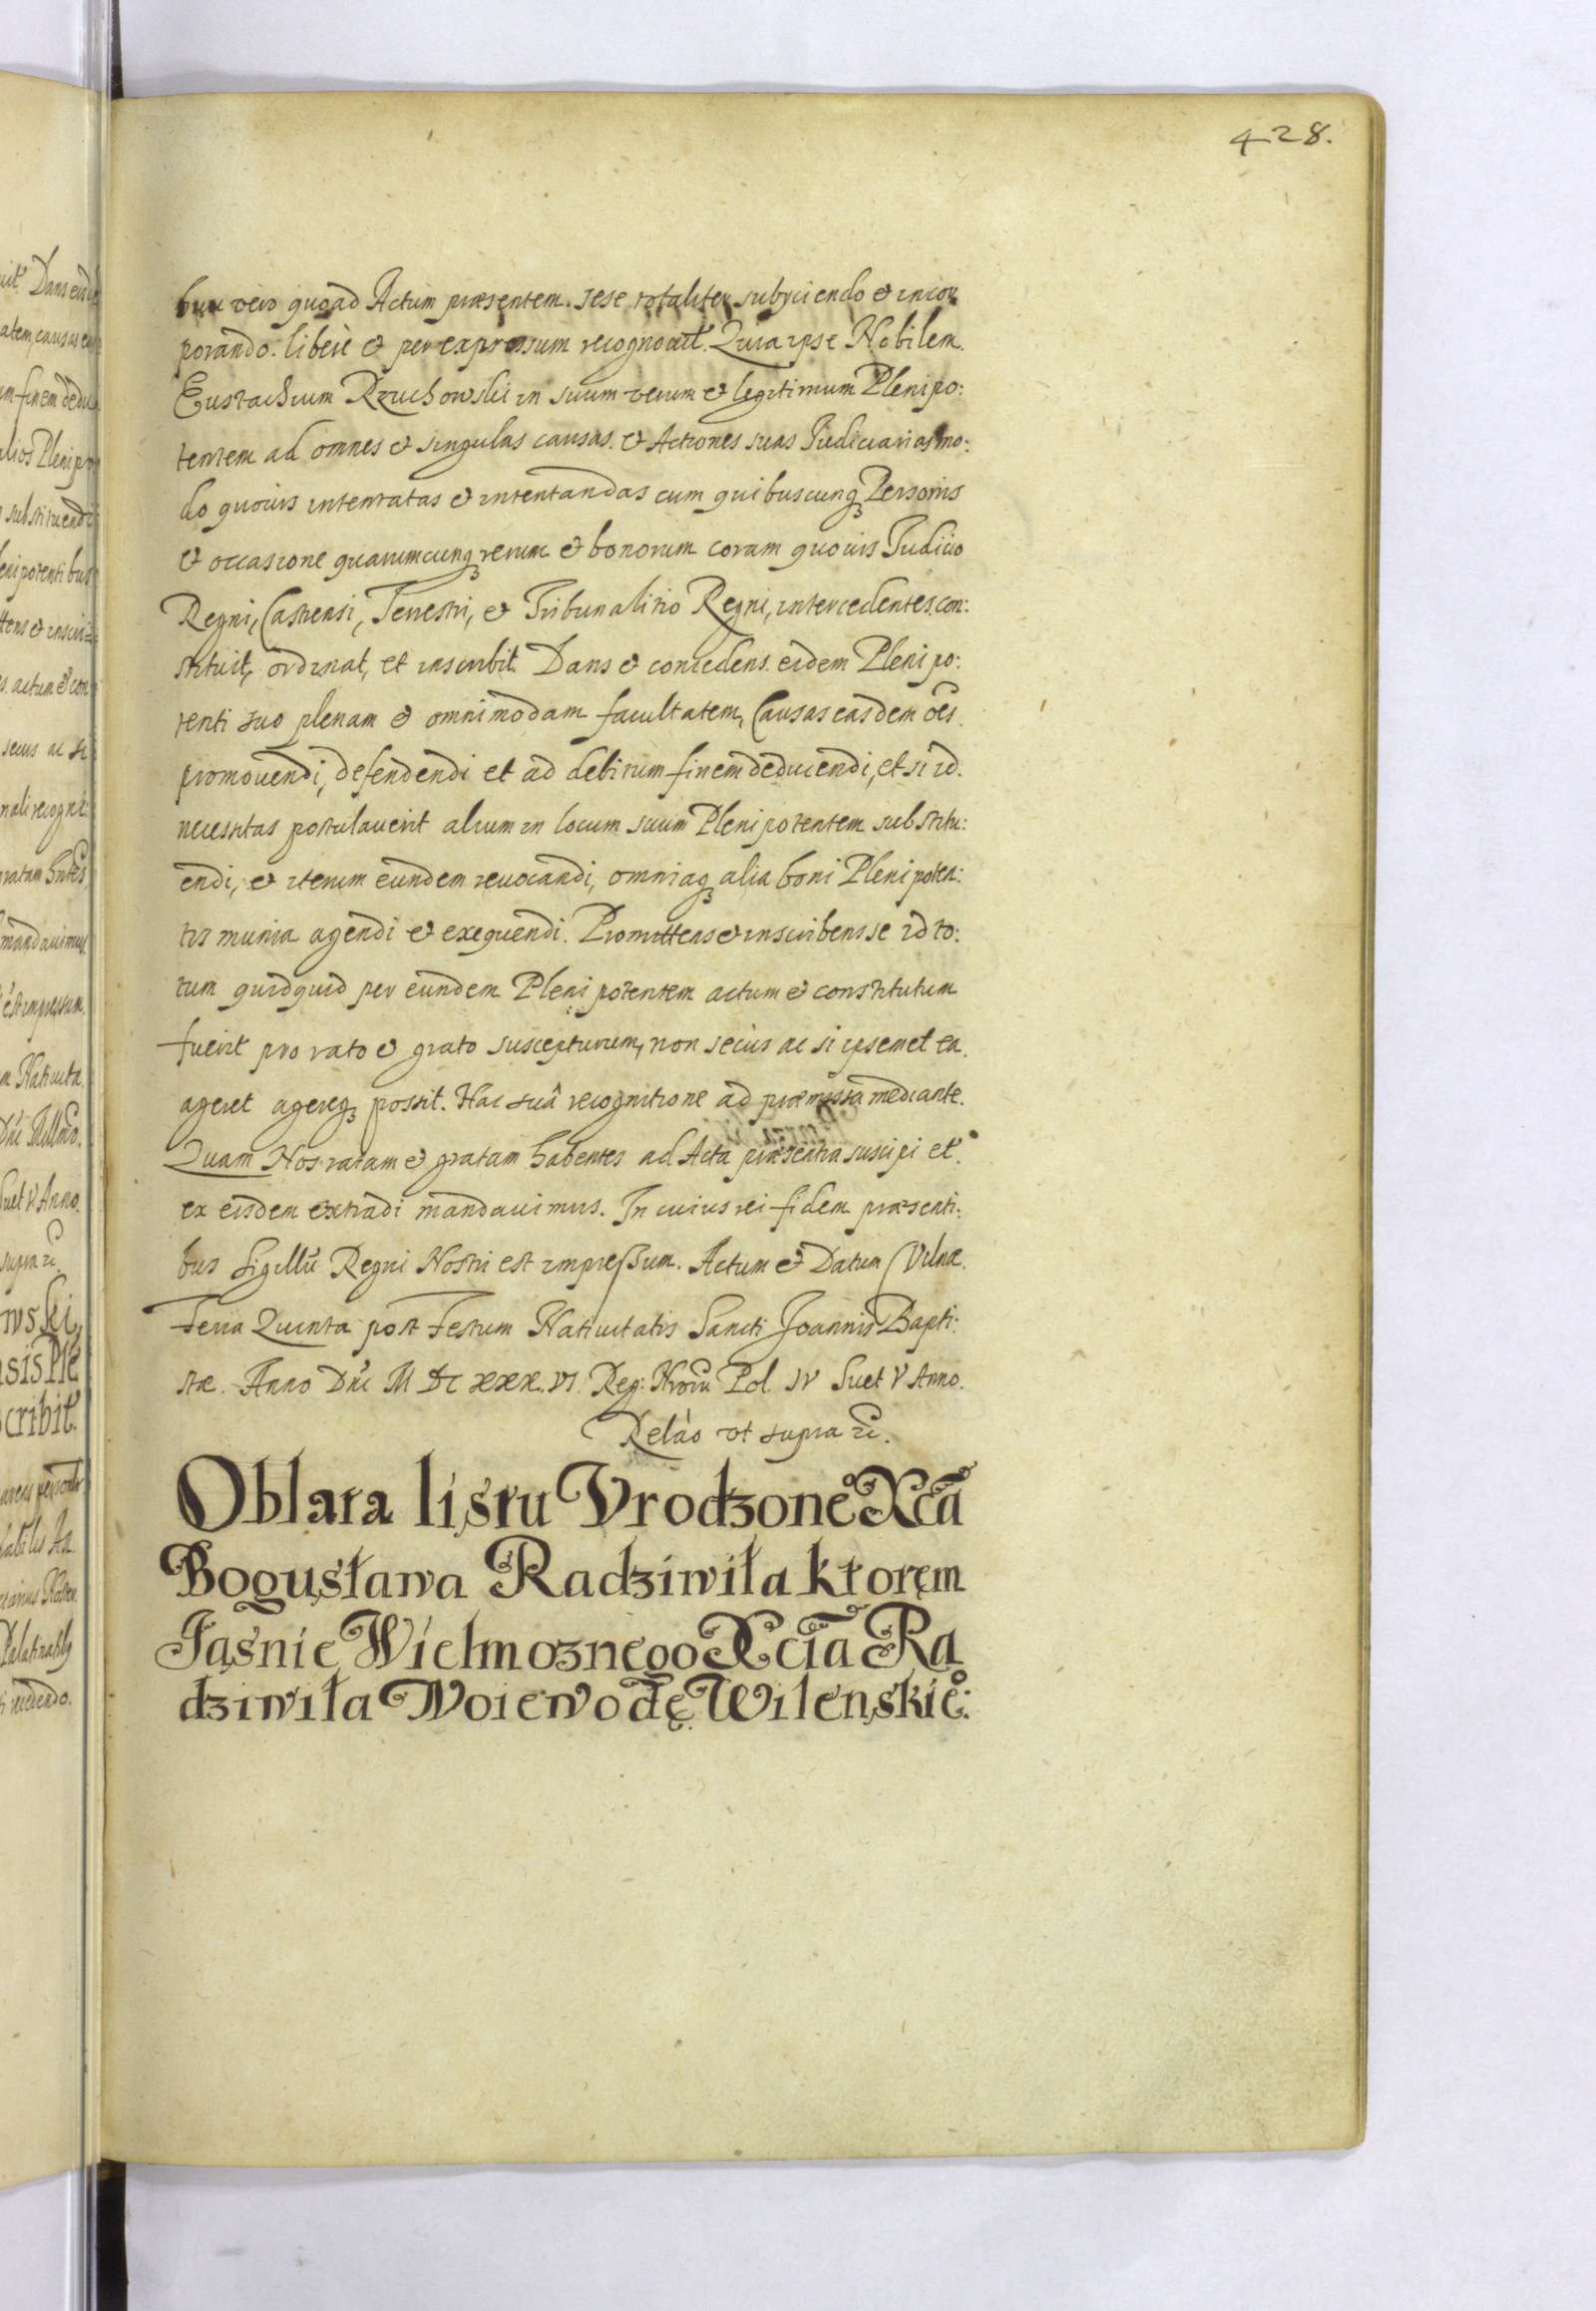 428.
huic vero quoad Actum praesentem. sese totaliter subyciendo & incor
porando. liberè & per expressum recognovit. Quia ipse Nobilem
Eustachium Rzuchowski in suum verum & legitimum Plenipo:
tentem ad omnes & singulas causas. & Actiones suas Iudiciarias mo:
do quovis intentatas & intentandas cum quibuscunqꝫ Personis
& occasione quarumcunqꝫ rerum & bonorum coram quovis Iudicio
Regni, Castrensi, Terrestri, & Tribunalitio Regni, intercedentes. con:
stituit, ordinat, et inscribit. Dans & concedens. eidem Plenipo:
tenti suo plenam & omnimodam facultatem, Causas easdem oēs
promovendi, defendendi et ad debitum finem deducendi, et si id.
necessitas postulaverit alium in locum suum Plenipotentem substitu:
endi, & iterum eundem revocandi, omniaqꝫ alia boni Plenipoten:
tis munia agendi & exequendi. Promittens & inscribens se id to:
tum quidquid per eundem Plenipotentem actum & constitutum
fuerit pro rato & grato suscepturum, non secùs ac si ipsemet ea.
ageret agereqꝫ possit. Hac suâ recognitione ad praemissa mediante.
Quam Nos ratam & gratam habentes ad Acta praesentia suscipi et
ex eisdem extradi mandavimus. In cuius rei fidem praesenti:
bus Sigillū Regni Nostri est impressum. Actum & Datum Vilnae.
Feria Quinta post Festum Nativitatis Sancti Joannis Bapti:
stae. Anno Dni M DC XXX. VI. Reg: Nrorū Pol. IV Suet V Anno.
Relāo vt supra &c.
Oblata listu Vrodzone° Xcā
Bogusława Radziwiła ktoręm
Jaśnie Wielmoznego Xcia Ra
dziwiła Woiewodę Wilenskie°:
uit. Dans eisde